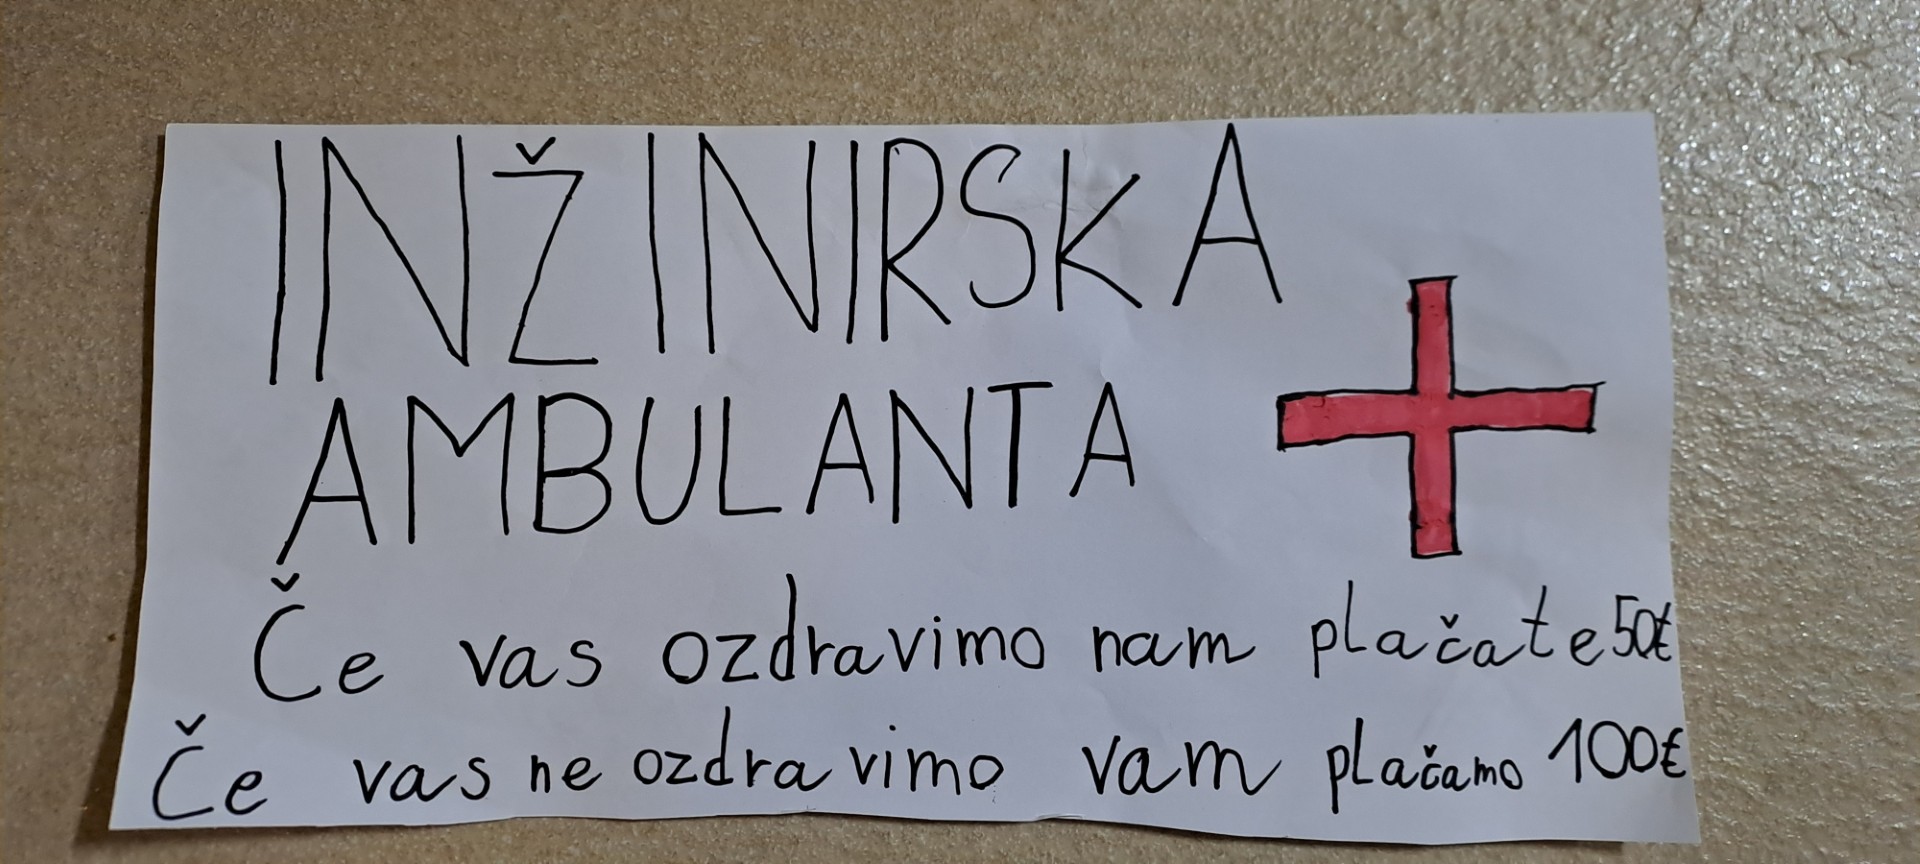 INŽINIRSKA
AMBULANTA
Če vas ozdravimo nam plačate 50€
Če vas ne ozdravimo vam plačamo 100€